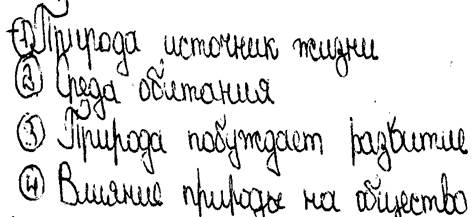 ① Природа источник жизни
② Среда обитания
③ Природа побуждает развитие
④ Влияние природы на общество